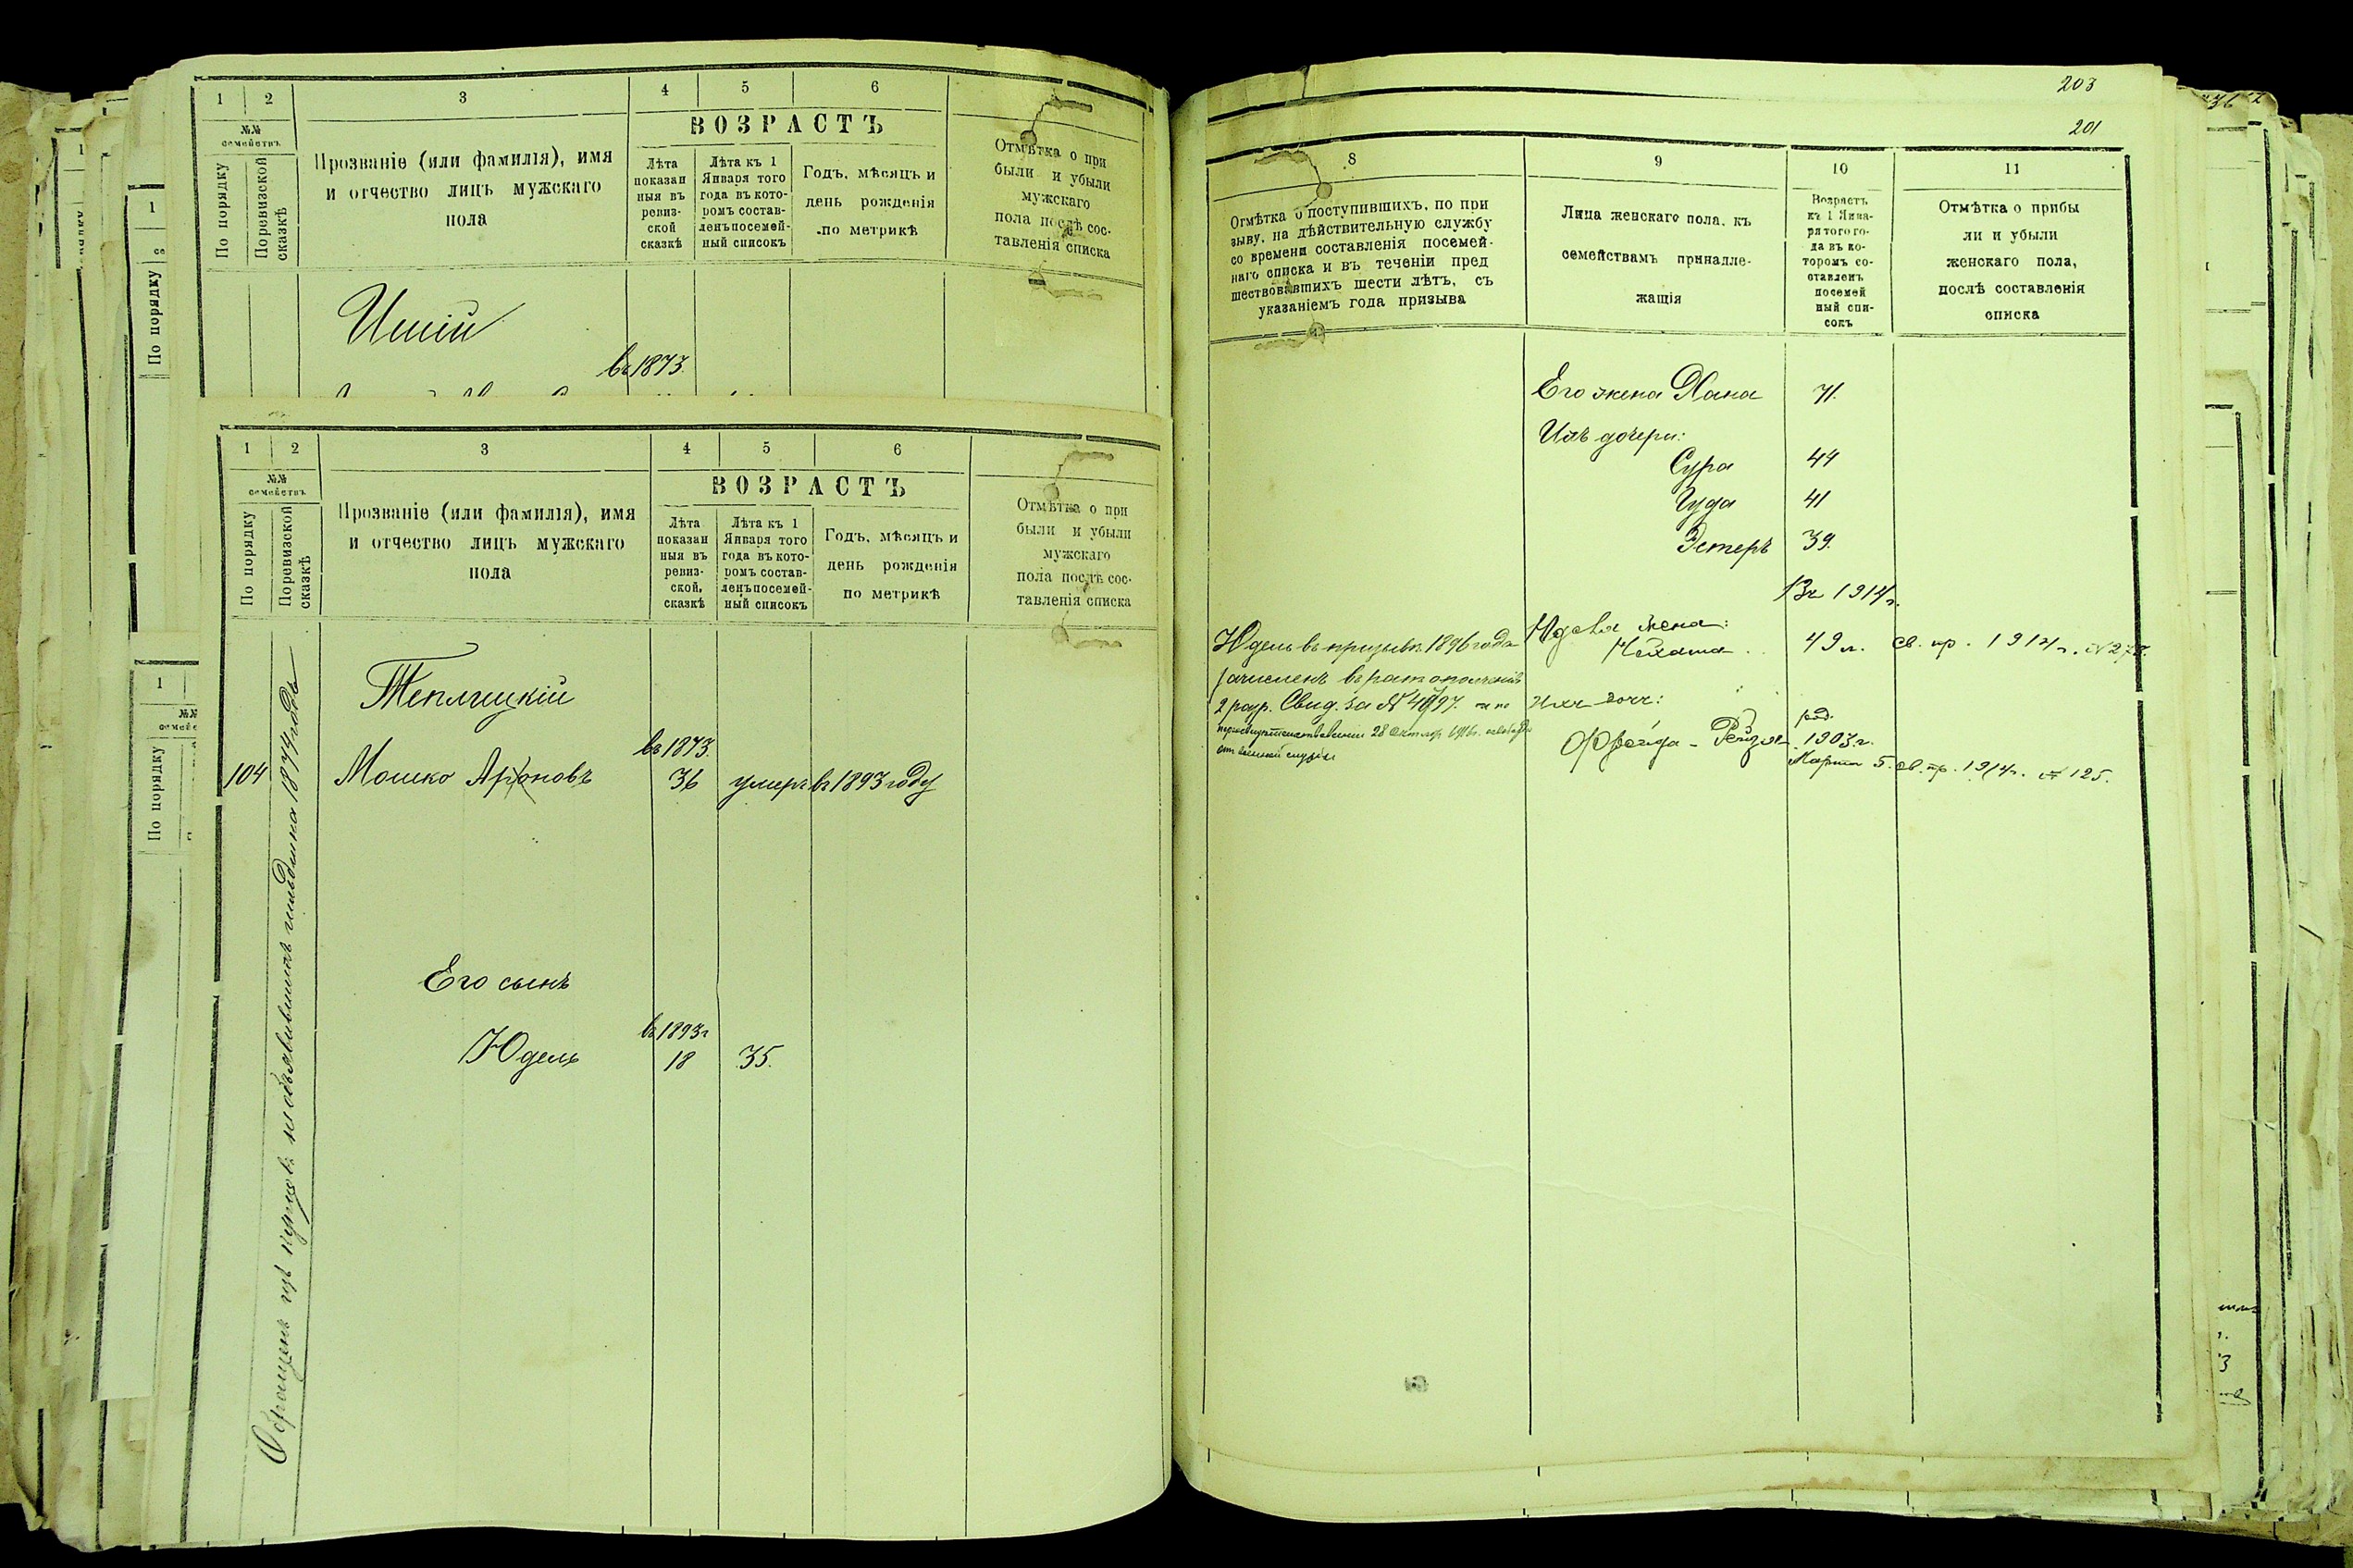 1 2 3 4 5 6
№№
семействъ
По порядку
По ревизской сказкѣ
Прозваніе (или фамилія), имя
и отчество лицъ мужскаго
пола
ВОЗРАСТЪ
Лѣта
показан
ныя въ
ревиз-
ской
сказкѣ
Лѣта къ 1
Января того
года въ кото-
ромъ состав-
ленъ посемей-
ный списокъ
Годъ, мѣсяцъ и
день рожденія
по метрикѣ
Отмѣтка о при
были и убыли
мужскаго
пола послѣ сос-
тавленія списка
въ 1873.
1 2 3 4 5 6
№№
семействъ
По порядку
По ревизской сказкѣ
Прозваніе (или фамилія), имя
и отчество лицъ мужскаго
пола
ВОЗРАСТЪ
Лѣта
показан
ныя въ
ревиз-
ской,
сказкѣ
Лѣта къ 1
Января того
года въ кото-
ромъ состав-
ленъ посемей-
ный списокъ
Годъ, мѣсяцъ и
день рожденія
по метрикѣ
Отмѣтка о при
были и убыли
мужскаго
пола послѣ сос-
тавленія списка
Теплицкій
въ 1873.
104 Мошко Ароновъ 36 умеръ въ 1893 году
Его сынъ
въ 1893г
Юдель 18 35.
Обращенъ изъ купцовъ необъявившихъ капитала 1874 годъ
203
201
8 9 10 11
Отмѣтка о поступившихъ, по при
зыву, на дѣйствительную службу
со времени составленія посемей-
наго списка и въ теченіи пред
шествовавшихъ шести лѣтъ, съ
указаніемъ года призыва
Лица женскаго пола, къ
семействамъ принадле-
жащія
Возрастъ
къ 1 Янва-
ря того го-
да въ ко-
торомъ со-
ставленъ
посемей
ный спи-
сокъ
Отмѣтка о прибы
ли и убыли
женскаго пола,
послѣ составленія
списка
Его жена Хана 71.
Ихъ дочери:
Сура 44
Гуда 41
Эстеръ 39.
Въ 1914 г.
Юдель въ призывъ 1896 года
зачисленъ въ рат. ополченія
2 разр. Свид. за № 4097. и по
переосвидѣтельствованіи 28 Октября 1916г.
от военной службы
Юделя жена:
Нехама 49 л. св. пр. 1914 г. № 278.
Ихъ дочь:
Фрейда-Рейзя род.
1903 г.
Марта 5. св. пр. 1914 г. № 125.